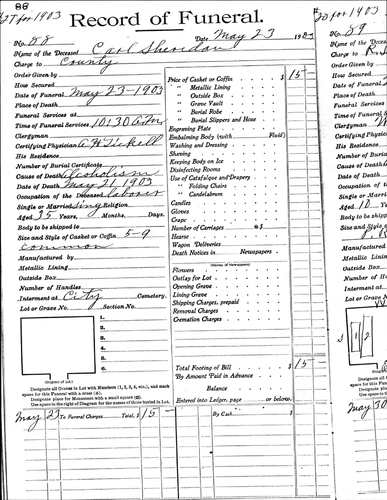 86
27 for 1903
Record of Funeral.
No. 88 Date, May 23 1903
Name of the Deceased Carl Sheridan
Charge to County
Order Given by
How Secured
Date of Funeral May 23-1903
Place of Death
Funeral Services at
Time of Funeral Services 10:30 A.M.
Clergyman
Certifying Physician
His Residence
Number of Burial Certificate
Cause of Death Alcoholism
Date of Death May 21, 1903
Occupation of the Deceased labour
Single or Married Sing Religion
Aged 35 Years, Months, Days.
Body to be shipped to
Size and Style of Casket or Coffin 5-9
common
Manufactured by
Metallic Lining
Outside Box
Number of Handles
Interment at City Cemetery.
Lot or Grave No. Section No.
1.
2.
3.
4.
5.
6.
(Diagram of Lot.)
Designate all Graves in Lot with Numbers (1, 2, 3, 4, etc.), and mark
space for this Funeral with a cross (+).
Designate place for Monument with a small square (□).
Use space to the right of Diagram for the names of those buried in Lot.
Price of Casket or Coffin $ 15 -
" Metallic Lining
" Outside Box
" Grave Vault
" Burial Robe
" Burial Slippers and Hose
Engraving Plate
Embalming Body (with Fluid)
Washing and Dressing
Shaving
Keeping Body on Ice
Disinfecting Rooms
Use of Catafalque and Drapery
" Folding Chairs
" Candelabrum
Candles
Gloves
Crape
Number of Carriages @ $
Hearse
Wagon Deliveries
Death Notices in Newspapers
Flowers
Outlay for Lot
Opening Grave
Lining Grave
Shipping Charges, prepaid
Removal Charges
Cremation Charges
Total Footing of Bill $ 15 -
By Amount Paid in Advance
Balance
Entered into Ledger, page or below.
May 23 To Funeral Charges Total, $ 15 - By Cash $
20 for 1903
No. 89
Name of the Deceased
Charge to
Order Given by
How Secured
Date of Funeral
Place of Death
Funeral Services
Time of Funeral
Clergyman
Certifying Physician
His Residence
Number of Burial
Cause of Death
Date of Death
Occupation of the
Single or Married
Aged 10 Years
Body to be shipped
Size and Style of
Manufactured by
Metallic Lining
Outside Box
Number of Handles
Interment at
Lot or Grave No.
May 30